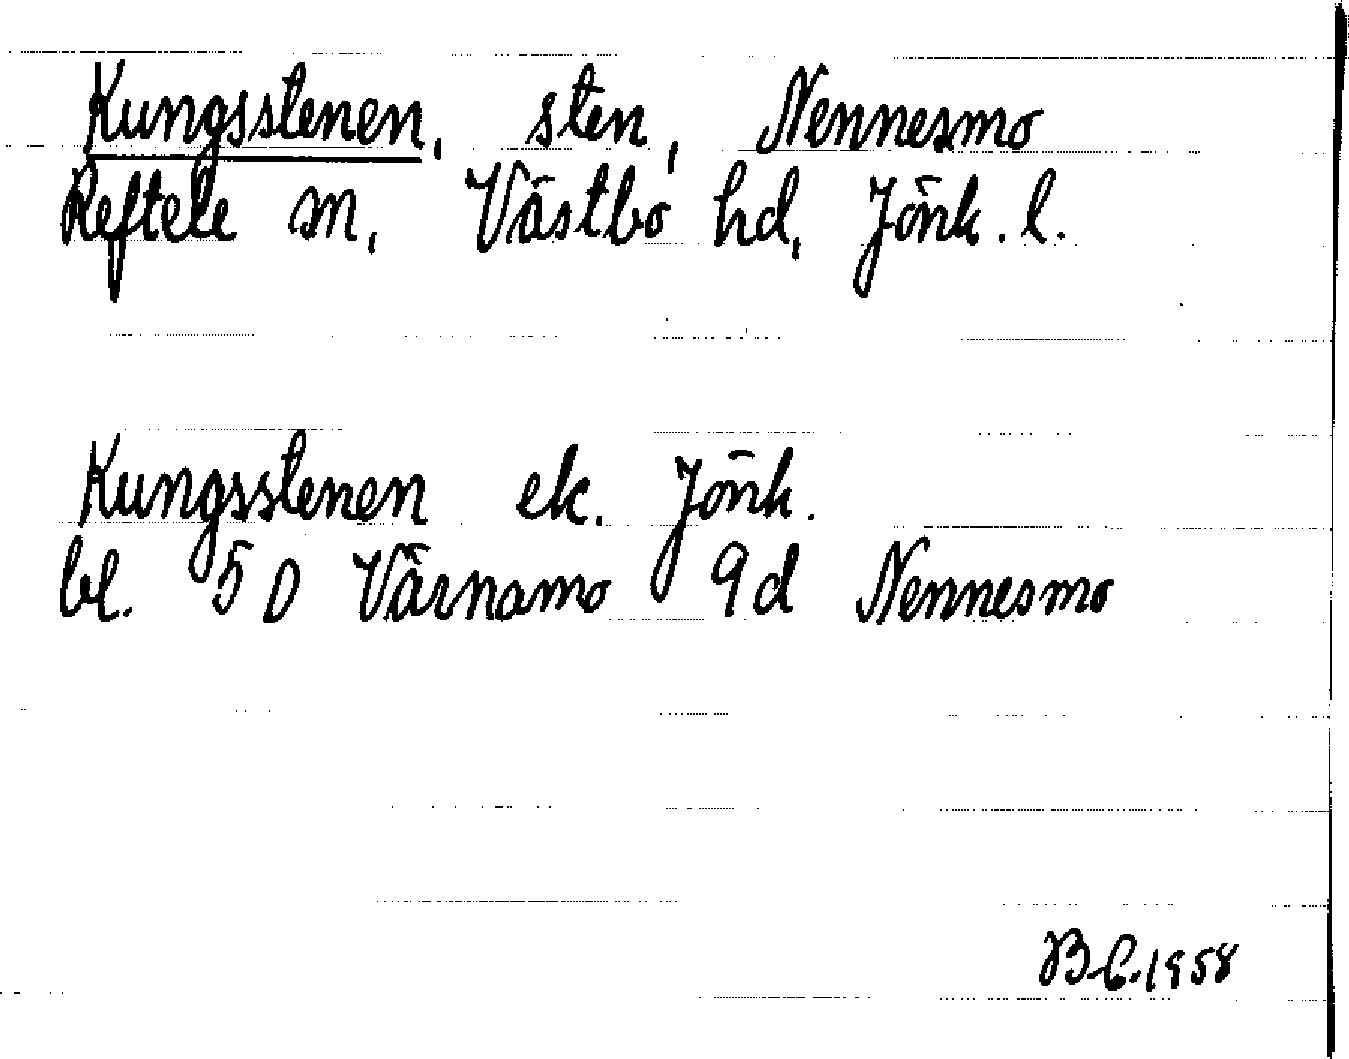 Kungsstenen, sten, Nennesmo
Reftele sn, Västbo hd, Jönk. l.
Kungsstenen ek. Jönk.
bl. 5 D Värnamo 9d Nennesmo
B.C. 1958